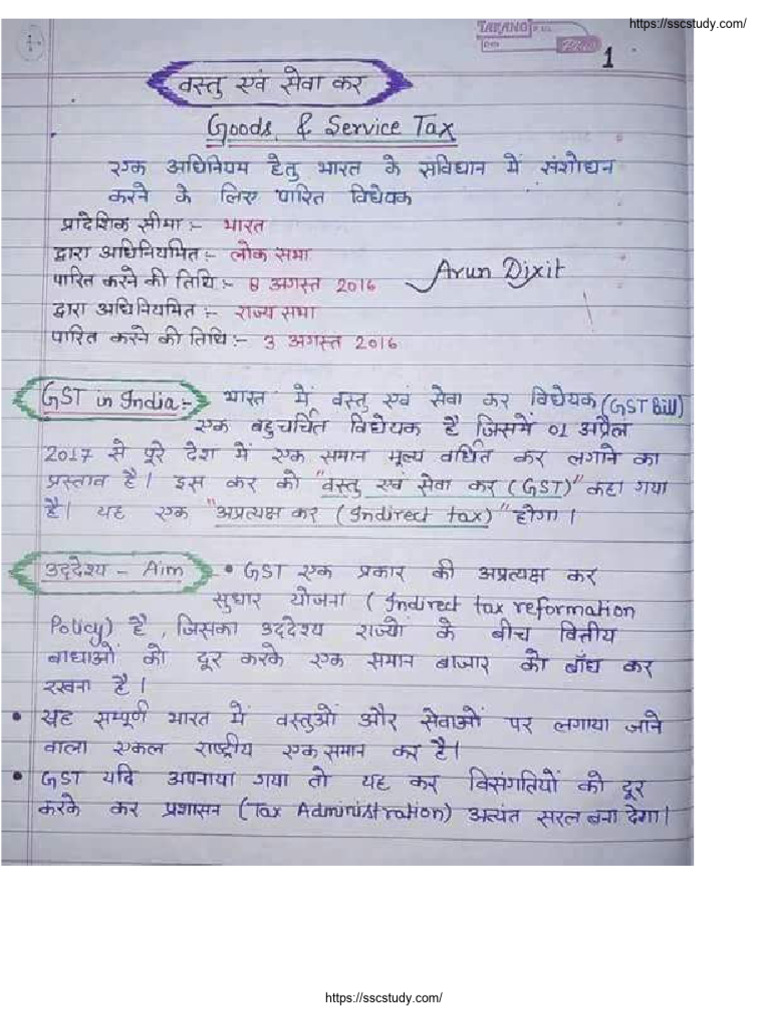 https://sscstudy.com/
1
वस्तु एवं सेवा कर
Goods & Service Tax
एक अधिनियम हेतु भारत के संविधान में संशोधन
करने के लिए पारित विधेयक
प्रादेशिक सीमा :- भारत
द्वारा अधिनियमित :- लोक सभा
पारित करने की तिथि :- 8 अगस्त 2016
Arun Dixit
द्वारा अधिनियमित :- राज्य सभा
पारित करने की तिथि :- 3 अगस्त 2016
GST in India :- भारत में वस्तु एवं सेवा कर विधेयक (GST Bill)
एक बहुचर्चित विधेयक है जिसमें 01 अप्रैल
2017 से पूरे देश में एक समान मूल्य वर्धित कर लगाने का
प्रस्ताव है। इस कर को "वस्तु एवं सेवा कर (GST)" कहा गया
है। यह एक "अप्रत्यक्ष कर (Indirect tax)" होगा।
उद्देश्य - Aim • GST एक प्रकार की अप्रत्यक्ष कर
सुधार योजना (Indirect tax reformation
Policy) है, जिसका उद्देश्य राज्यों के बीच वित्तीय
बाधाओं को दूर करके एक समान बाजार को बाँध कर
रखना है।
• यह सम्पूर्ण भारत में वस्तुओं और सेवाओं पर लगाया जाने
वाला एकल राष्ट्रीय एकसमान कर है।
• GST यदि अपनाया गया तो यह कर विसंगतियों को दूर
करके कर प्रशासन (Tax Administration) अत्यंत सरल बना देगा।
https://sscstudy.com/